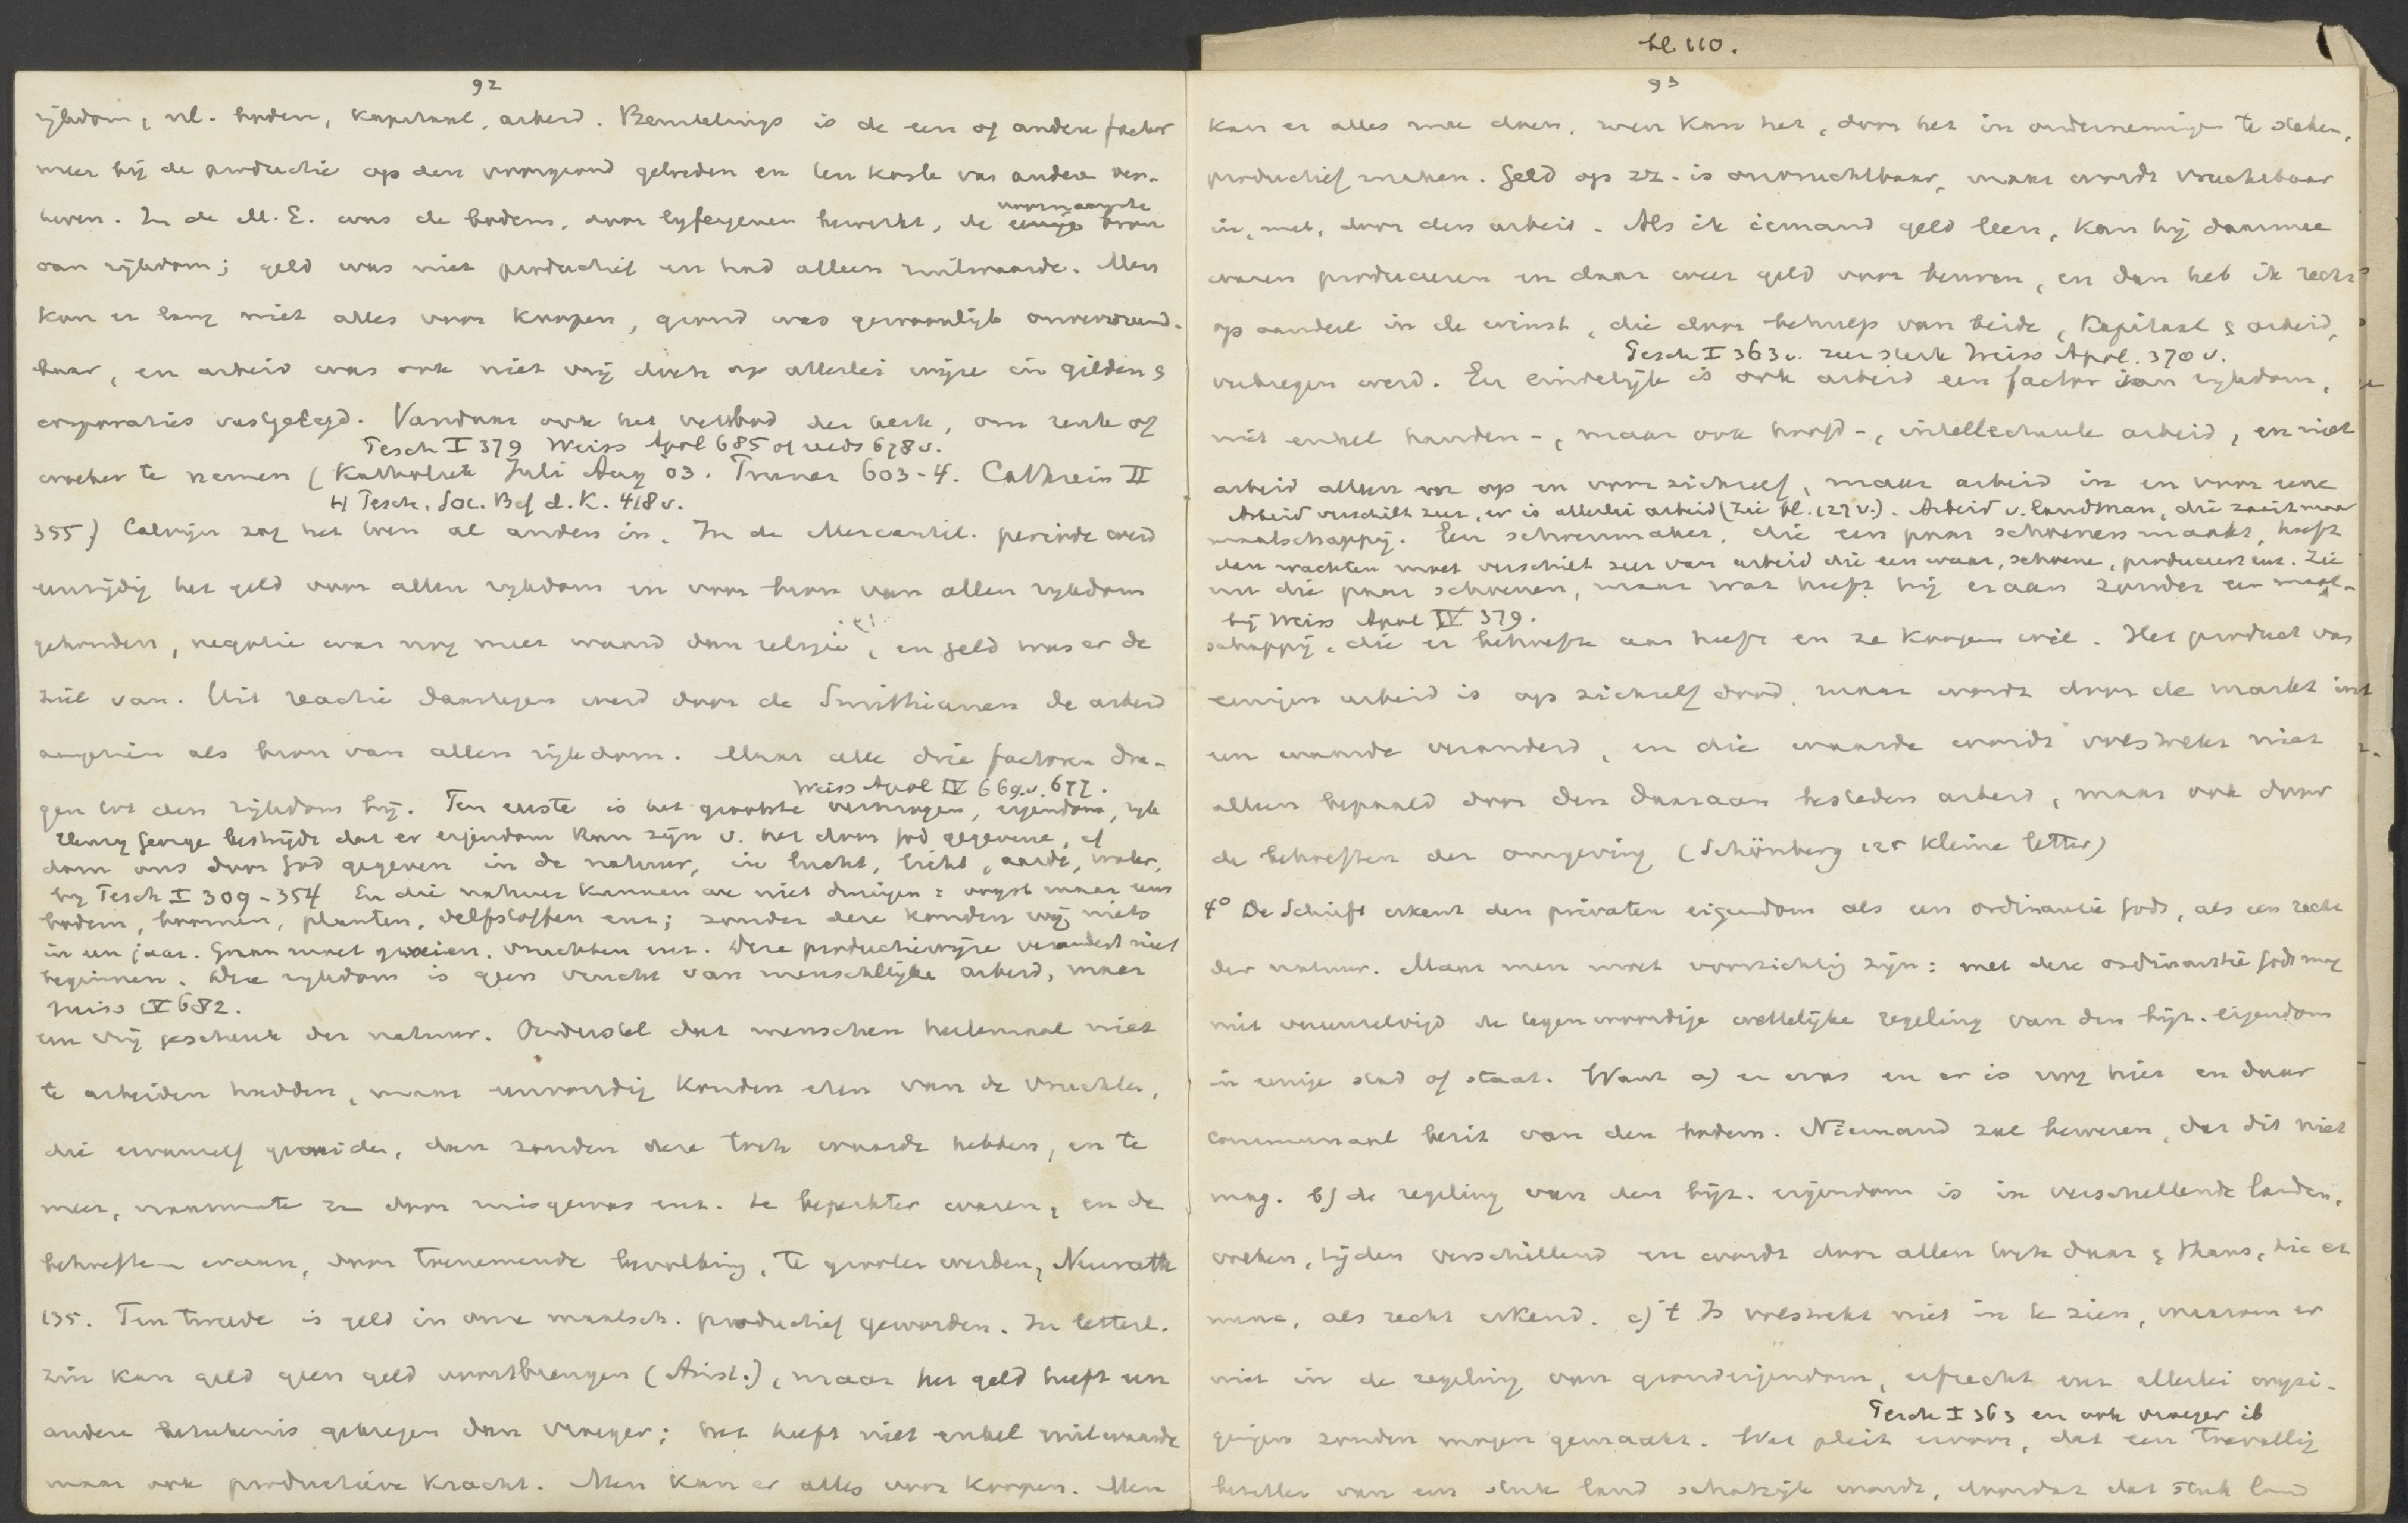 bl 110.
92
rijkdom, nl. bodem, kapitaal, arbeid. Beurtelings is de een of andere factor
meer bij de productie op den voorgrond getreden en ten koste van andere ver-
heven. In de M.E. was de bodem, door lijfeigenen bewerkt, de enige bron
voornaamste
van rijkdom; geld was niet productief en had alleen ruilwaarde. Men
kon er lang niet alles voor koopen, grond was gewoonlijk onvervreemd-
baar, en arbeid was ook niet vrij doch op allerlei wijze in gilden &
corporaties vastgelegd. Vandaar ook het verbod der kerk, om rente of
Pesch I 379 Weiss Apol 685 of reeds 678 v.
woeker te nemen (Katholiek Juli Aug 03. 603-4. Cathrein II
H Pesch. Soc. Bef d. K. 418 v.
355) Calvijn zag het toen al anders in. In de Mercantil. periode werd
eenzijdig het geld voor allen rijkdom en voor bron van allen rijkdom
gehouden, negotie was nog meer waard dan religie, en geld was er de
ziel van. Uit reactie daartegen werd door de Smithianen de arbeid
aangezien als bron van allen rijkdom. Maar alle drie factoren dra-
Weiss Apol IV 669 v. 677.
gen tot den rijkdom bij. Ten eerste is het grootste vermogen, eigendom, rijk
Henry George bestrijdt dat er eigendom kan zijn v. het door God gegevene, cf
dom ons door God gegeven in de natuur, in lucht, licht, aarde, water,
bij Pesch I 309-354 En die natuur kunnen we niet dwingen: oogst maar eens
bodem, boomen, planten, delfstoffen enz; zonder deze konden wij niets
in een jaar. Graan moet groeien, vruchten enz. Deze productiewijze verandert niet
beginnen. Deze rijkdom is geen vrucht van menschelijke arbeid, maar
Weiss IV 682.
een vrij geschenk der natuur. Onderstel dat menschen heelemaal niet
te arbeiden hadden, maar eenvoudig konden eten van de vruchten,
die vanzelf groeiden, dan zouden deze toch waarde hebben, en te
meer, naarmate ze door misgewas enz. te beperkter waren, en de
behoeften eraan, door toenemende bevolking, te grooter werden, Neurath
135. Ten tweede is geld in onze maatsch. productief geworden. In letterl.
zin kan geld geen geld voortbrengen (Arist.), maar het geld heeft een
andere beteekenis gekregen dan vroeger; het heeft niet enkel ruilwaarde
maar ook productieve kracht. Men kan er alles voor koopen. Men
93
kan er alles mee doen, men kan het, door het in ondernemingen te steken,
productief maken. Geld op zz. is onvruchtbaar, maar wordt vruchtbaar
in, met, door den arbeid. Als ik iemand geld leen, kan hij daarmee
waren produceeren en daar weer geld voor beuren, en dan heb ik recht
op aandeel in de winst, die door behulp van beide, kapitaal & arbeid,
Pesch I 363 v. zeer sterk Weiss Apol. 370 v.
verkregen werd. En eindelijk is ook arbeid een factor van rijkdom,
niet enkel handen-, maar ook hoofd-, intellectueele arbeid, en niet
arbeid alleen op en voor zichzelf, maar arbeid in en voor eene
Arbeid verschilt zeer, er is allerlei arbeid (zie bl. 127 v.). Arbeid v. landman, die zaait maar
maatschappij. Een schoenmaker, die een paar schoenen maakt, heeft
dan wachten moet verschilt zeer van arbeid die een waar, schoene, produceert enz. Zie
nu die paar schoenen, maar wat heeft hij eraan zonder een maat-
bij Weiss Apol IV 379.
schappij, die er behoefte aan heeft en ze koopen wil. Het product van
eenigen arbeid is op zichzelf dood, maar wordt door de markt in
een waarde veranderd, en die waarde wordt volstrekt niet
alleen bepaald door den daaraan besteden arbeid, maar ook door
de behoeften der omgeving (Schönberg 125 kleine letter)
4° De Schrift erkent den privaten eigendom als een ordinantie Gods, als een recht
der natuur. Maar men moet voorzichtig zijn: met deze ordinantie Gods mag
niet vereenzelvigd de tegenwoordige wettelijke regeling van den bijz. eigendom
in eenige stad of staat. Want a) er was en er is nog hier en daar
communaal bezit van den bodem. Niemand zal beweren, dat dit niet
mag. b) de regeling van den bijz. eigendom is in verschillende landen,
volken, tijden verschillend en wordt door allen toch daar & thans, hic et
nunc, als recht erkend. c) 't Is volstrekt niet in te zien, waarom er
niet in de regeling van grondeigendom, erfrecht enz allerlei wijzi-
Pesch I 363 en ook vroeger ib
gingen zouden mogen gemaakt. Wat pleit ervoor, dat een toevallig
bezitter van een stuk land schatrijk wordt, doordat dat stuk land